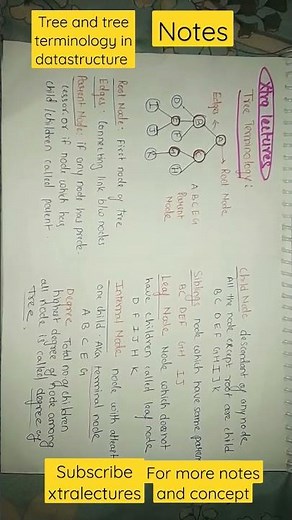 Tree and tree
terminology in
datastructure
Notes
Xtra lectures
Tree Terminology:
Root Node
Edges
A
B
C
D
E
F
G
H
I
J
K
A B C E G
Parent
Node
Root Node- First node of tree
Edges: Connecting link b/w nodes
Parent Node: if any node has prede
cessor or if node which has
child/children called parent
Child Node: descendant of any node
All the node except root are child
B C D E F G H I J K
Siblings node which have same parent
BC DEF GH IJ
Leaf Node: Node which doesnot
have children called leaf node
D F I J H K
Internal Node node with atleast
one child AKA terminal node
A B C E G
Degree Total no of children
highest degree of node among
all node is called degree of
Tree.
Subscribe
xtralectures
For more notes
and concept